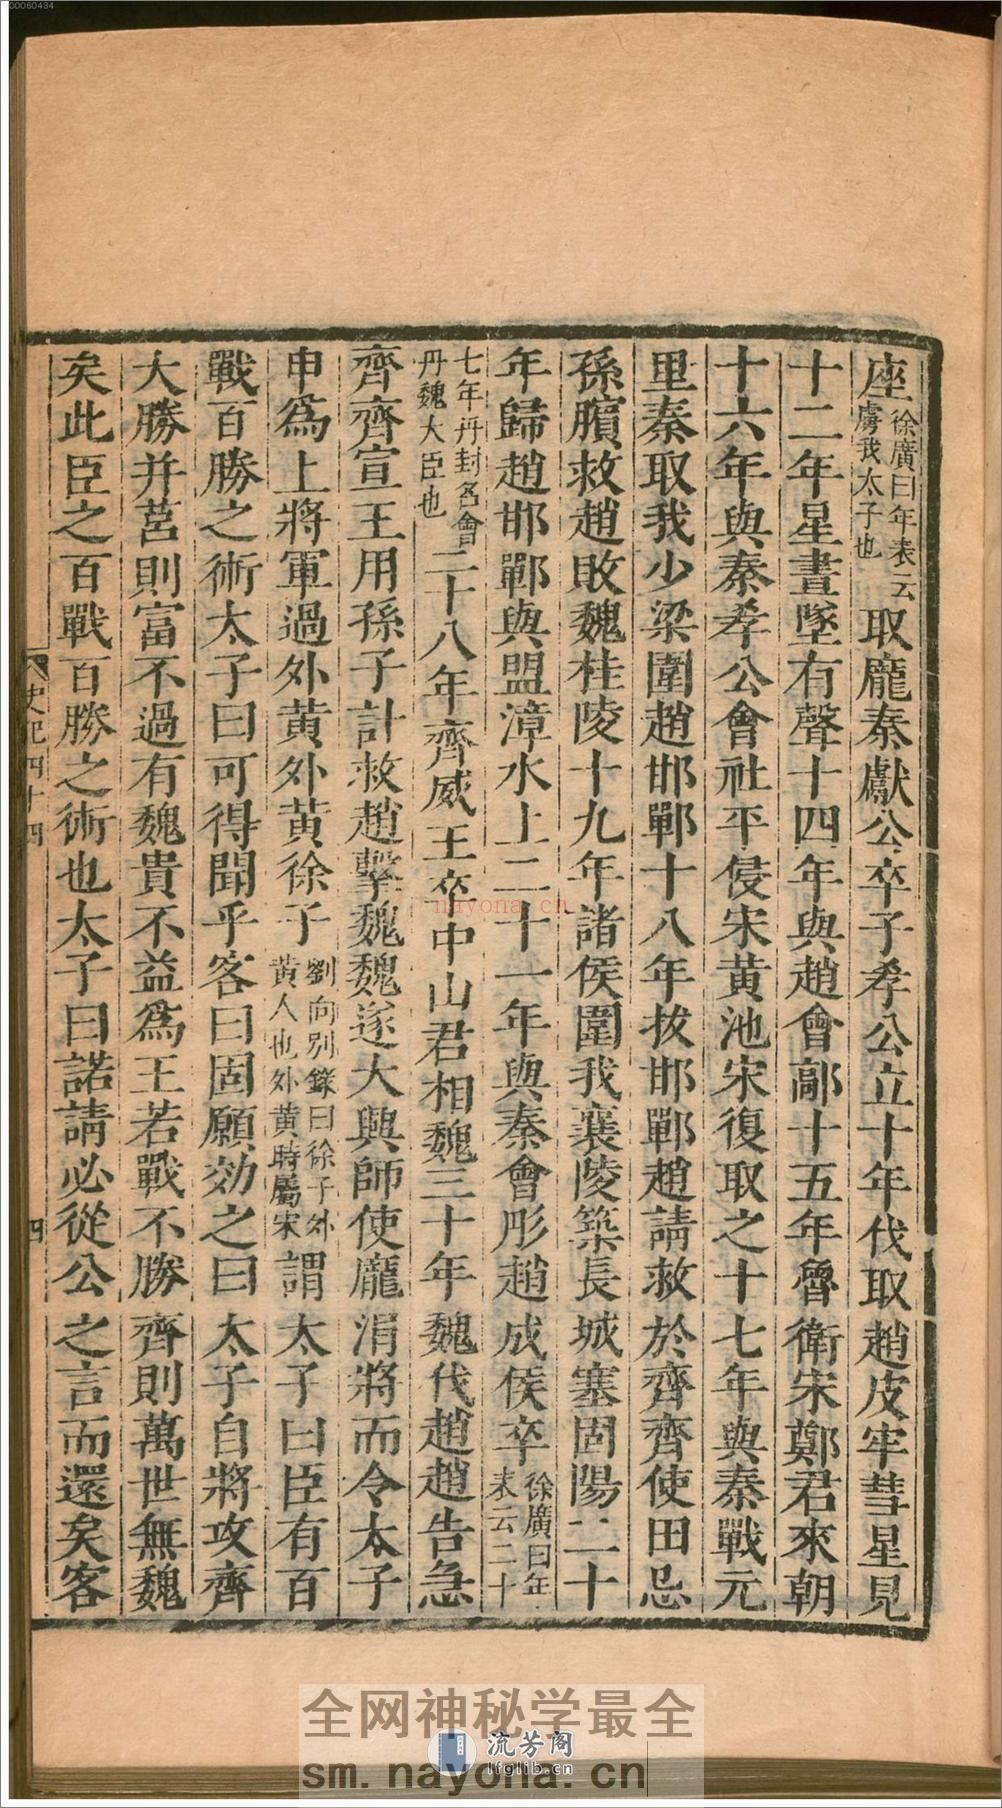 00060434
座徐廣曰年表云虜我太子也取龐秦獻公卒子孝公立十年伐取趙皮牢彗星見
十二年星晝墜有聲十四年與趙會鄗十五年魯衛宋鄭君來朝
十六年與秦孝公會社平侵宋黃池宋復取之十七年與秦戰元
里秦取我少梁圍趙邯鄲十八年拔邯鄲趙請救於齊齊使田忌
孫臏救趙敗魏桂陵十九年諸侯圍我襄陵築長城塞固陽二十
年歸趙邯鄲與盟漳水上二十一年與秦會彤趙成侯卒徐廣曰年表云二十
七年丹封名會丹魏大臣也二十八年齊威王卒中山君相魏三十年魏伐趙趙告急
齊齊宣王用孫子計救趙擊魏魏遂大興師使龐涓將而令太子
申爲上將軍過外黃外黃徐子劉向別錄曰徐子外黃人也外黃時屬宋謂太子曰臣有百
戰百勝之術太子曰可得聞乎客曰固願効之曰太子自將攻齊
大勝并莒則富不過有魏貴不益爲王若戰不勝齊則萬世無魏
矣此臣之百戰百勝之術也太子曰諾請必從公之言而還矣客
史記四十四
四
nayona.cn
全网神秘学最全
流芳阁
lfglib.cn
sm.nayona.cn